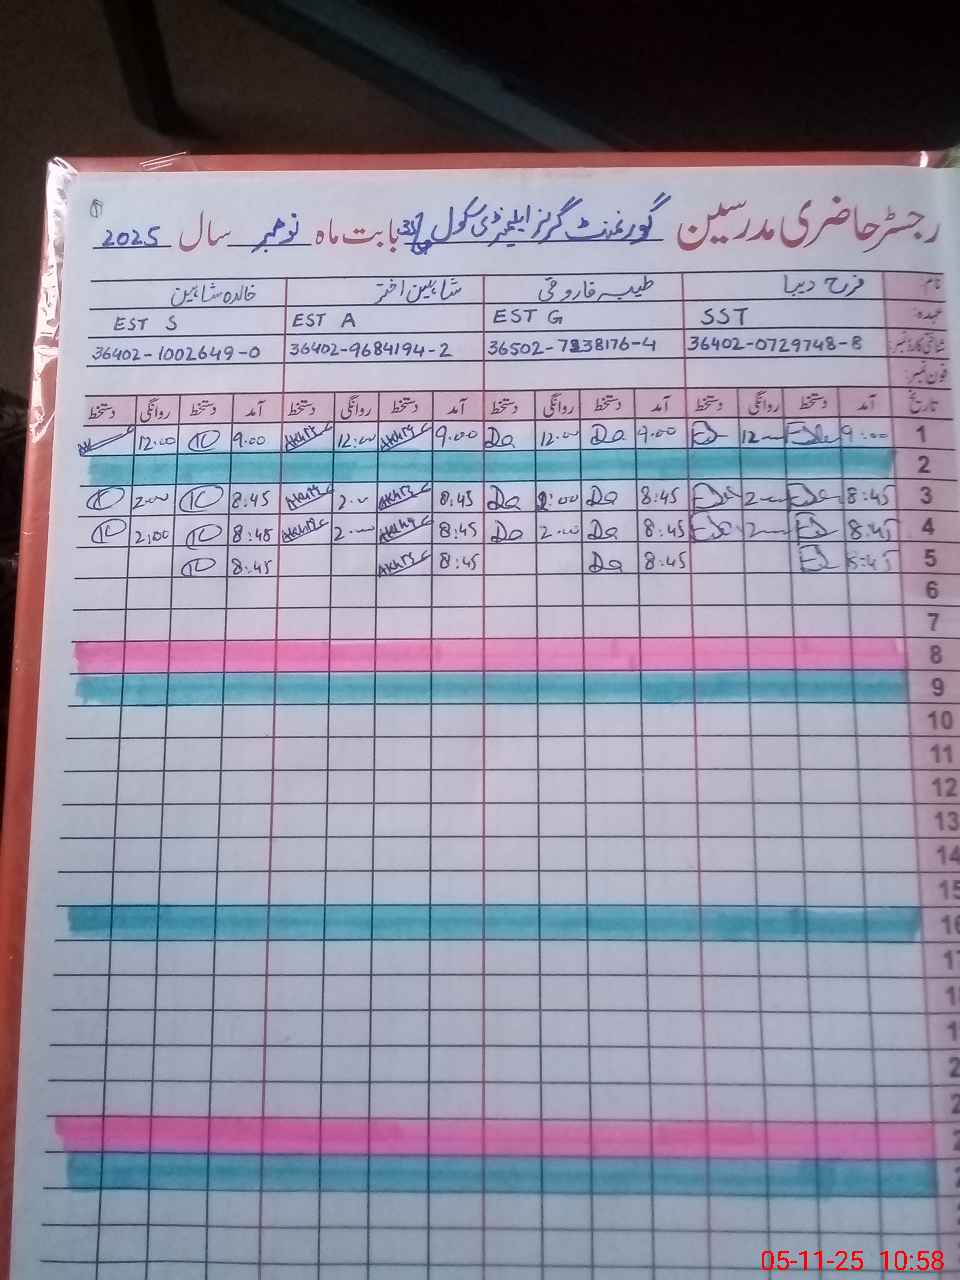 رجسٹر حاضری مدرسین گورنمنٹ گرلز ایلیمنٹری سکول بابت ماہ نومبر سال 2025
نام: فرح دیبا طیبہ فاروقی شاہین اختر خالدہ شاہین
عہدہ: SST EST G EST A EST S
شناختی کارڈ نمبر: 36402-0729748-8 36402-9684194-2 36402-1002649-0
فون نمبر:
تاریخ آمد دستخط روانگی دستخط آمد دستخط روانگی دستخط آمد دستخط روانگی دستخط آمد دستخط روانگی دستخط
1 9:00 12:00 9:00 Da 12:00 Da 9:00 Akhtr 12:00 Akhtr 9:00 12:00
2
3 8:45 2:00 8:45 Da 2:00 Da 8:45 Akhtr 2:00 Akhtr 8:45 2:00
4 8:45 2:00 8:45 Da 2:00 Da 8:45 Akhtr 2:00 Akhtr 8:45 2:00
5 8:45 8:45 Da 8:45 Akhtr 8:45
6
7
8
9
10
11
12
13
14
15
16
05-11-25 10:58